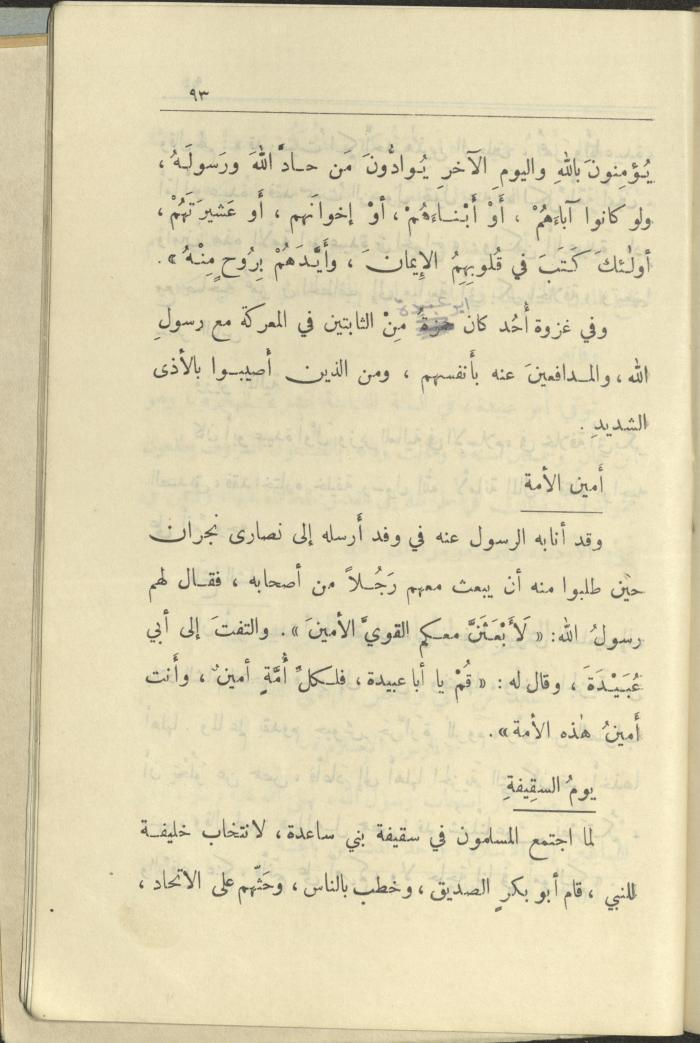 ٩٣
يُـؤمِنونَ باللهِ واليومِ الآخرِ يُـوادُّونَ مَن حـادَّ اللهَ ورَسولَـهُ ،
ولو كانوا آباءَهُمْ ، أَوْ أَبْـنـاءَهُمْ ، أوْ إخوانَهم ، أَو عَشيرَتَهُمْ ،
أولٰئكَ كَـتَبَ في قُلوبِهِمُ الإيمانَ ، وأَيَّـدَهُمْ بِرُوحٍ مِنْـهُ » .
وفي غزوة أُحُد كان مِنْ الثابتين في المعركة مع رسولِ
الله ، والمـدافعينَ عنه بأَنفسهم ، ومن الذين أُصيبـوا بالأذى
الشديدِ .
أَمين الأمة
وقد أنابه الرسول عنه في وفد أَرسله إلى نصارى نجران
حين طلبوا منه أن يبعث معهم رَجُـلاً من أصحابه ، فقـال لهم
رسولُ الله : « لَأَبْعَـثَنَّ معـكم القويَّ الأمينَ » . والتفتَ إلى أبي
عُبَـيْـدَةَ ، وقال له : « قُمْ يا أبا عبيدة ، فلـكلِّ أُمَّةٍ أمينٌ ، وأَنت
أَمينُ هٰذه الأمة » .
يومُ السقِيفةِ
لما اجتمع المسلمون في سقيفة بني ساعدة ، لانتخاب خليفـة
للنبي ، قام أبو بكرٍ الصديق ، وخطب بالناس ، وحَثّهم على الاتحاد ،